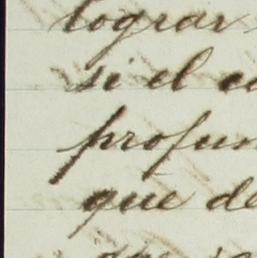 lograr
si el
profun
que de